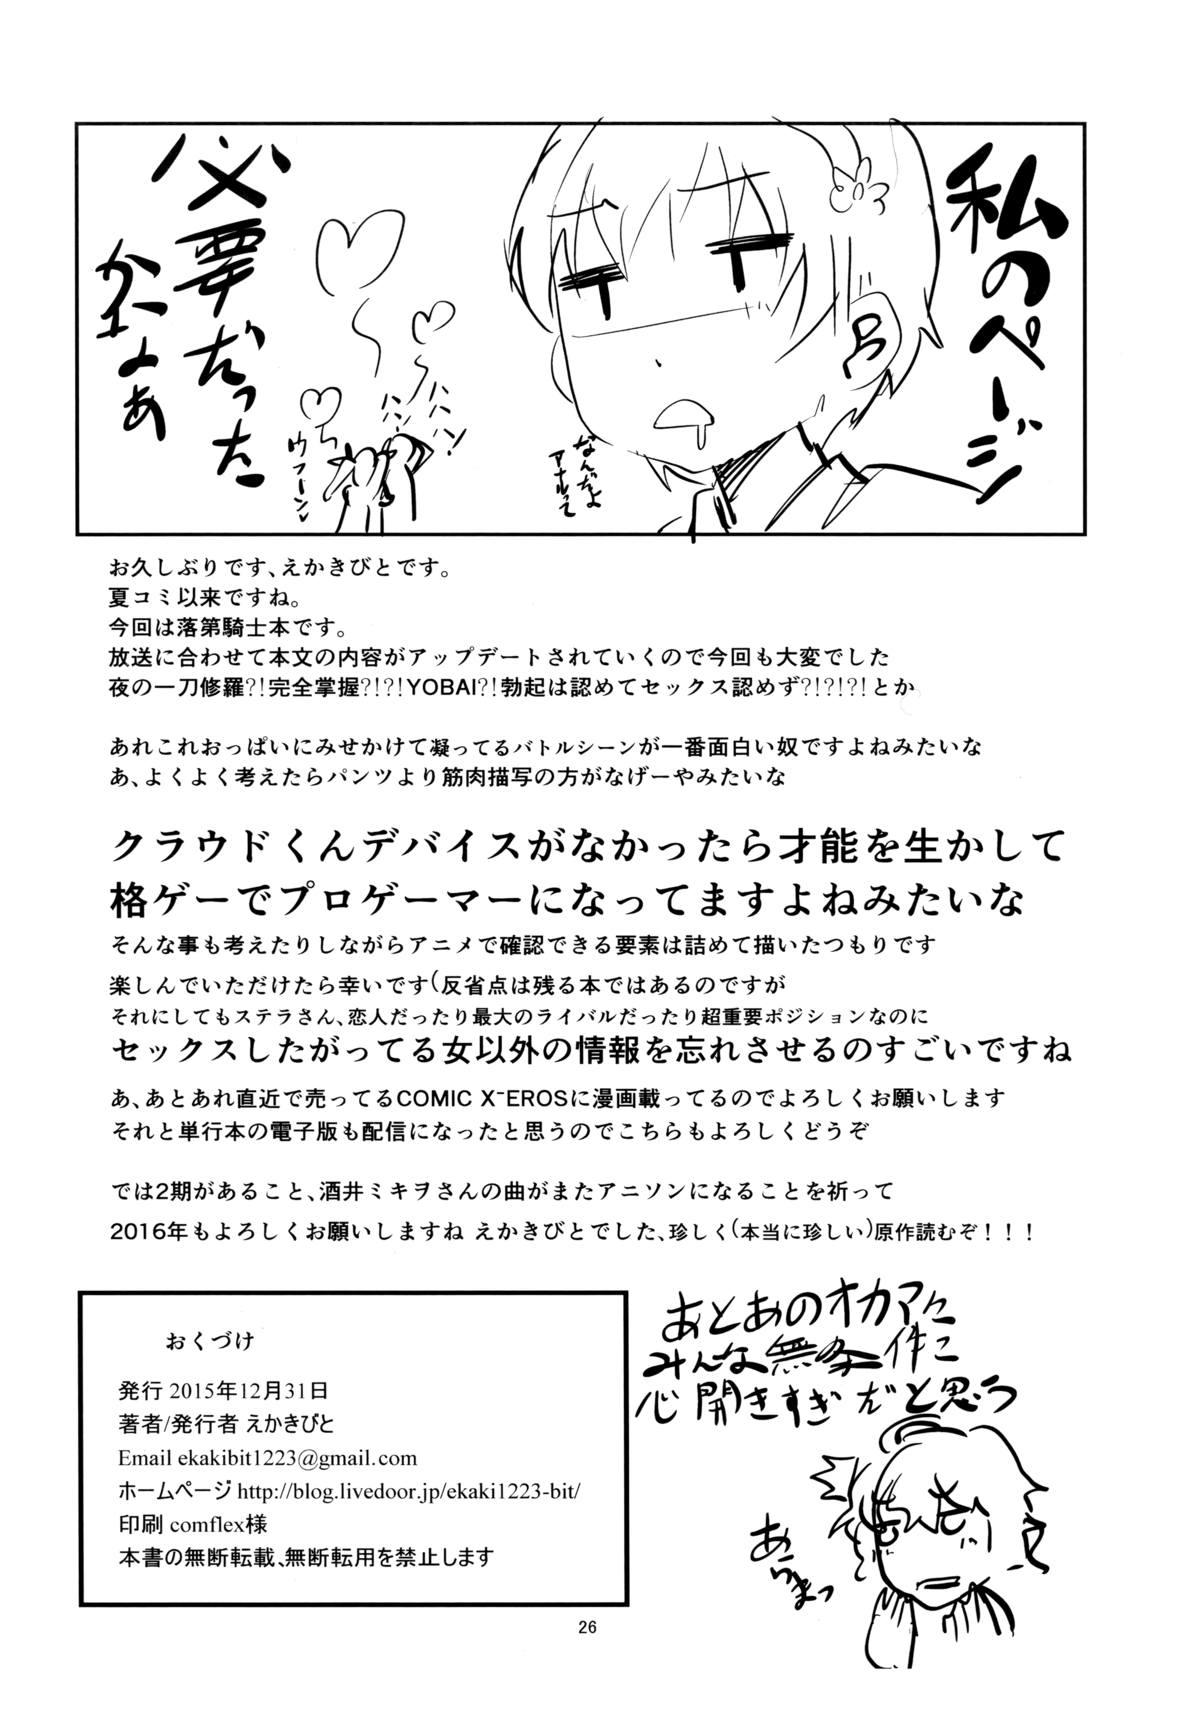 私のページ
必要だった
かよぉ
なんだよ
アナルって
ハハハン
ハン
ウフーン
お久しぶりです、えかきびとです。
夏コミ以来ですね。
今回は落第騎士本です。
放送に合わせて本文の内容がアップデートされていくので今回も大変でした
夜の一刀修羅?!完全掌握?!?!YOBAI?!勃起は認めてセックス認めず?!?!?!とか
あれこれおっぱいにみせかけて凝ってるバトルシーンが一番面白い奴ですよねみたいな
あ、よくよく考えたらパンツより筋肉描写の方がなげーやみたいな
クラウドくんデバイスがなかったら才能を生かして
格ゲーでプロゲーマーになってますよねみたいな
そんな事も考えたりしながらアニメで確認できる要素は詰めて描いたつもりです
楽しんでいただけたら幸いです(反省点は残る本ではあるのですが
それにしてもステラさん、恋人だったり最大のライバルだったり超重要ポジションなのに
セックスしたがってる女以外の情報を忘れさせるのすごいですね
あ、あとあれ直近で売ってるCOMIC X-EROSに漫画載ってるのでよろしくお願いします
それと単行本の電子版も配信になったと思うのでこちらもよろしくどうぞ
では2期があること、酒井ミキヲさんの曲がまたアニソンになることを祈って
2016年もよろしくお願いしますね えかきびとでした、珍しく(本当に珍しい)原作読むぞ！！！
おくづけ
発行 2015年12月31日
著者/発行者 えかきびと
Email ekakibit1223@gmail.com
ホームページ http://blog.livedoor.jp/ekaki1223-bit/
印刷 comflex様
本書の無断転載、無断転用を禁止します
あとあのオカマに
みんな無条件に
心開きすぎだと思う
あらまっ
26